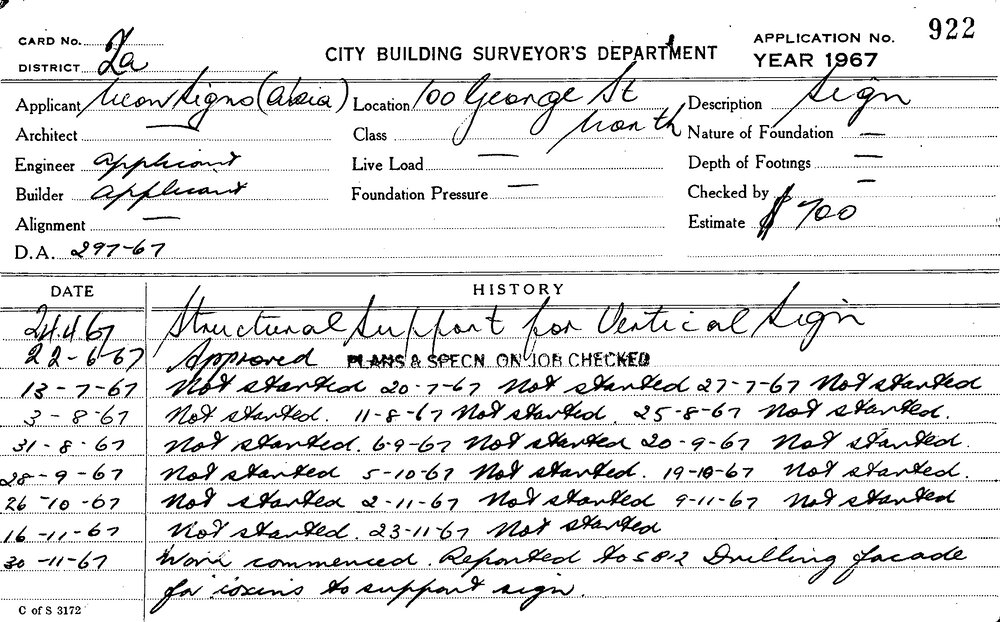 922
CARD No.
DISTRICT 2a
CITY BUILDING SURVEYOR'S DEPARTMENT
APPLICATION No.
YEAR 1967
Applicant Neon Signs (a/sia) Location 100 George St North Description Sign
Architect — Class Nature of Foundation —
Engineer applicant Live Load — Depth of Footings —
Builder applicant Foundation Pressure — Checked by —
Alignment — Estimate $ 700
D.A. 297-67
DATE HISTORY
24.4.67 Structural Support for Vertical Sign
22-6-67 Approved PLANS & SPECN. ON JOB CHECKED
13-7-67 Not started 20-7-67 Not started 27-7-67 Not started
3-8-67 Not started. 11-8-67 Not started 25-8-67 Not started.
31-8-67 Not started. 6-9-67 Not started 20-9-67 Not started.
28-9-67 Not started 5-10-67 Not started. 19-10-67 Not started.
26-10-67 Not started 2-11-67 Not started 9-11-67 Not started
16-11-67 Not started. 23-11-67 Not started
30-11-67 Work commenced. Reported to Drilling facade
for to support sign.
C of S 3172